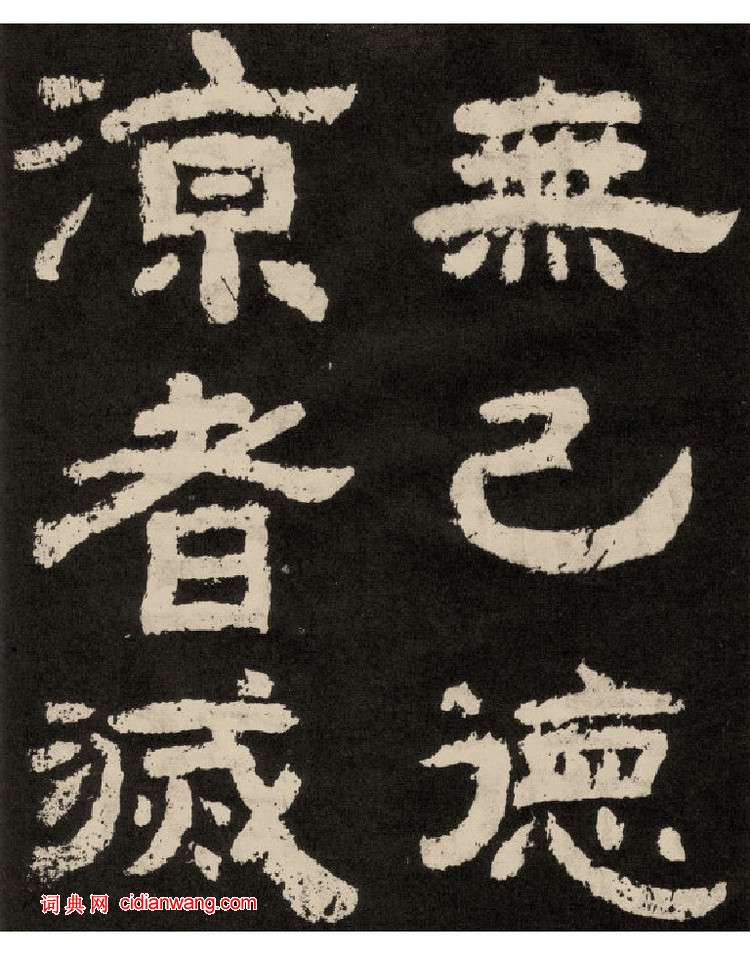 無己德
涼者滅
词典网 cidianwang.com